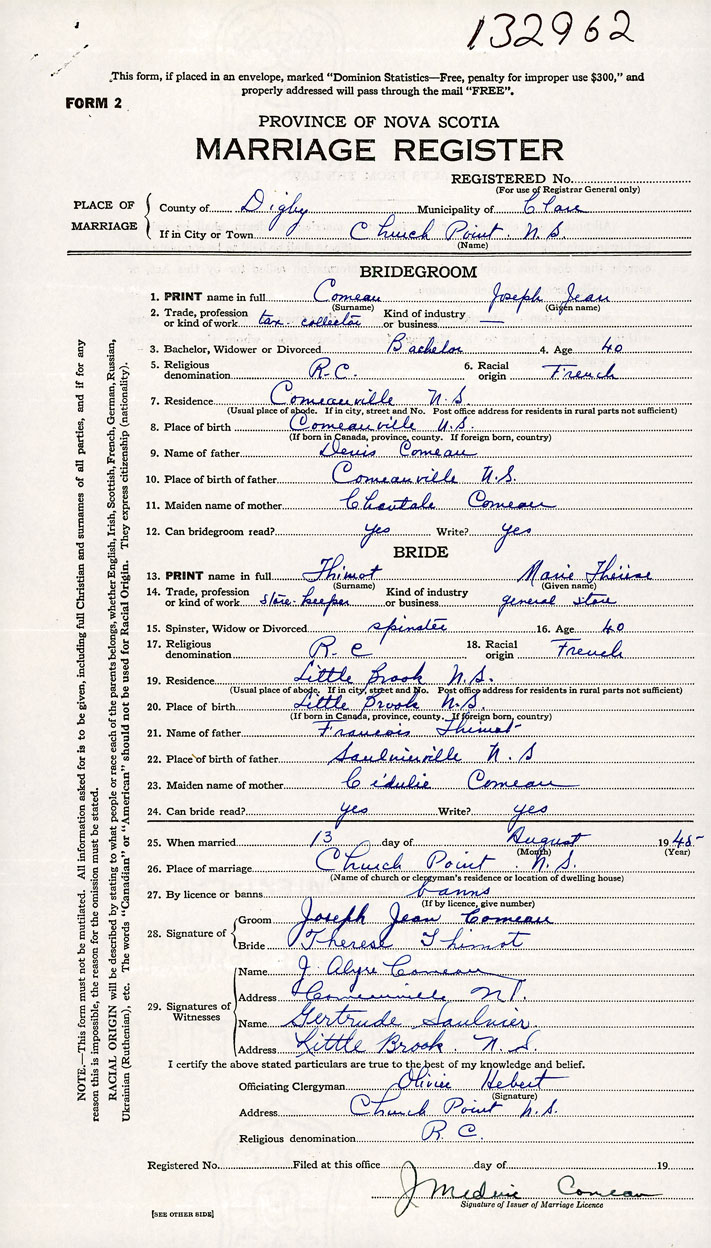 132962
This form, if placed in an envelope, marked "Dominion Statistics—Free, penalty for improper use $300," and
properly addressed will pass through the mail "FREE".
FORM 2
PROVINCE OF NOVA SCOTIA
MARRIAGE REGISTER
REGISTERED No.
(For use of Registrar General only)
PLACE OF MARRIAGE
County of Digby Municipality of Clare
If in City or Town Church Point N.S.
(Name)
BRIDEGROOM
1. PRINT name in full Comeau Joseph Jean
(Surname) (Given name)
2. Trade, profession or kind of work tax-collector Kind of industry or business —
3. Bachelor, Widower or Divorced Bachelor 4. Age 40
5. Religious denomination R.C. 6. Racial origin French
7. Residence Comeauville N.S.
(Usual place of abode. If in city, street and No. Post office address for residents in rural parts not sufficient)
8. Place of birth Comeauville N.S.
(If born in Canada, province, county. If foreign born, country)
9. Name of father Denis Comeau
10. Place of birth of father Comeauville N.S.
11. Maiden name of mother Chantale Comeau
12. Can bridegroom read? yes Write? yes
BRIDE
13. PRINT name in full Thimot Marie Thérèse
(Surname) (Given name)
14. Trade, profession or kind of work store-keeper Kind of industry or business general store
15. Spinster, Widow or Divorced spinster 16. Age 40
17. Religious denomination R.C 18. Racial origin French
19. Residence Little Brook N.S.
(Usual place of abode. If in city, street and No. Post office address for residents in rural parts not sufficient)
20. Place of birth Little Brook N.S.
(If born in Canada, province, county. If foreign born, country)
21. Name of father Francois Thimot
22. Place of birth of father Saulnierville N.S
23. Maiden name of mother Comeau
24. Can bride read? yes Write? yes
25. When married 13 day of August 1945
(Month) (Year)
26. Place of marriage Church Point N.S.
(Name of church or clergyman's residence or location of dwelling house)
27. By licence or banns banns
(If by licence, give number)
28. Signature of
Groom Joseph Jean Comeau
Bride Therese Thimot
29. Signatures of Witnesses
Name J. Alyre Comeau
Address Comeauville N.S.
Name Gertrude Saulnier
Address Little Brook. N.S.
I certify the above stated particulars are true to the best of my knowledge and belief.
Officiating Clergyman Olivier Hebert
(Signature)
Address Church Point N.S.
Religious denomination R.C.
Registered No. Filed at this office day of 19
J Comeau
Signature of Issuer of Marriage Licence
[SEE OTHER SIDE]
NOTE.—This form must not be mutilated. All information asked for is to be given, including full Christian and surnames of all parties, and if for any
reason this is impossible, the reason for the omission must be stated.
RACIAL ORIGIN will be described by stating to what people or race each of the parents belongs, whether English, Irish, Scottish, French, German, Russian,
Ukrainian (Ruthenian), etc. The words "Canadian" or "American" should not be used for Racial Origin. They express citizenship (nationality).